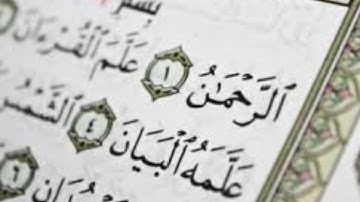 بِسْمِ
ٱلرَّحْمَٰنُ ١ عَلَّمَ ٱلْقُرْءَانَ
عَلَّمَهُ ٱلْبَيَانَ ٤ ٱلشَّمْسُ
٦